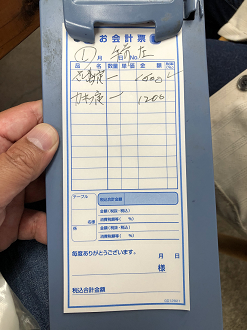 お会計票
① 月 No.
品名 数量 単価 金額
定 一 1500
カキ 定 一 1200
テーブル 税込合計金額
金額(税抜・税込)
消費税額等( %)
名様 金額(税抜・税込)
係 消費税額等( %)
毎度ありがとうございます。 月 日
様
税込合計金額